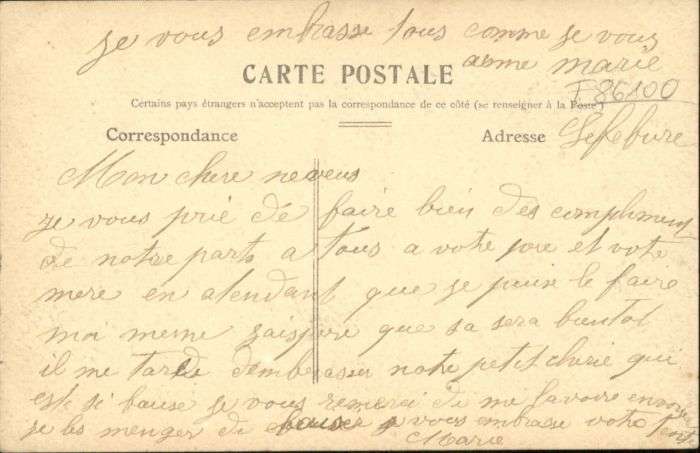 je vous embrasse tous comme je vous
aeme marie
CARTE POSTALE
F 86100
Certains pays étrangers n'acceptent pas la correspondance de ce côté (se renseigner à la Poste)
Correspondance
Adresse
Lefebvre
Mon chere neveus
je vous prie de faire bien des compliment
de notre parts a tous a votre pere et votre
mere en atendant que je puise le faire
moi meme jaispere que sa sera bientot
il me tarde dembrasser notre petit cherie qui
est si je vous remerci de me lavoire envoyer
je les menger de baiser je vous embrase votre tente
Marie